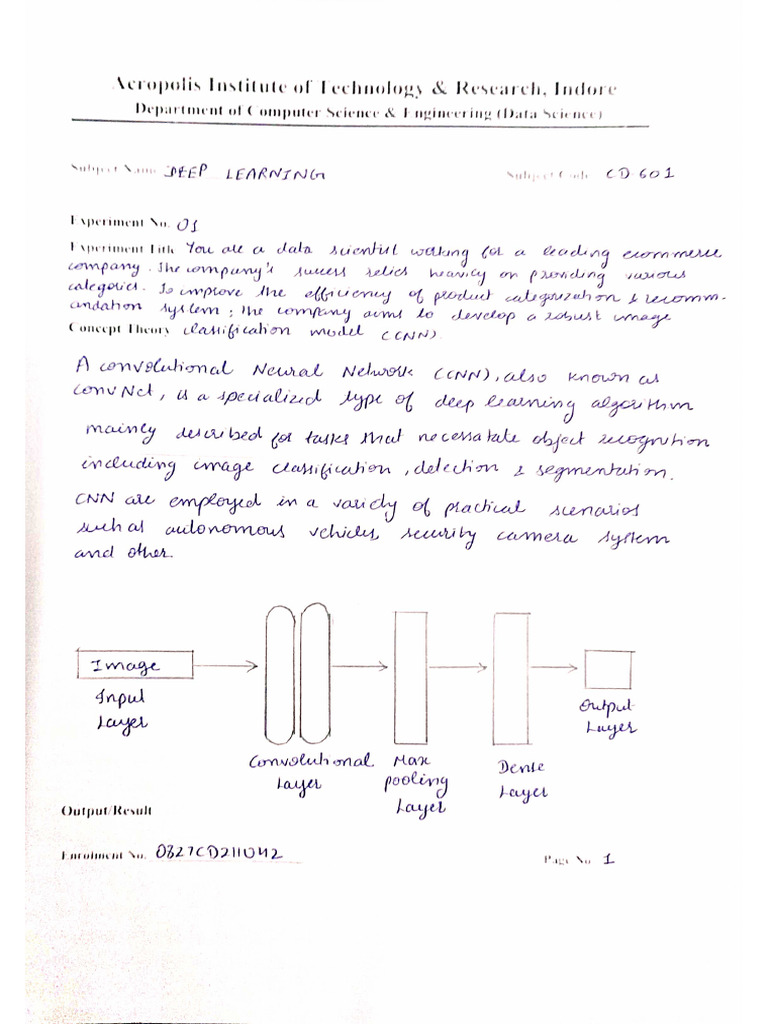 Acropolis Institute of Technology & Research, Indore
Department of Computer Science & Engineering (Data Science)
Subject Name DEEP LEARNING Subject Code CD-601
Experiment No. 01
Experiment Title You are a data scientist working for a leading ecommerce
company. The company's success relies heavily on providing various
categories. To improve the efficiency of product categorization & recomm-
andation system; the company aims to develop a robust image
Concept Theory classification model (CNN).
A convolutional Neural Network (CNN), also known as
convNet, is a specialized type of deep learning algorithm
mainly described for tasks that necessatate object recognition
including image classification, detection & segmentation.
CNN are employed in a variety of practical scenarios
such as autonomous vehicles, security camera system
and other.
Image
Input
Layer
Convolutional
Layer
Max
pooling
Layer
Dense
Layer
Output
Layer
Output/Result
Enrolment No. 0827CD211042 Page No 1